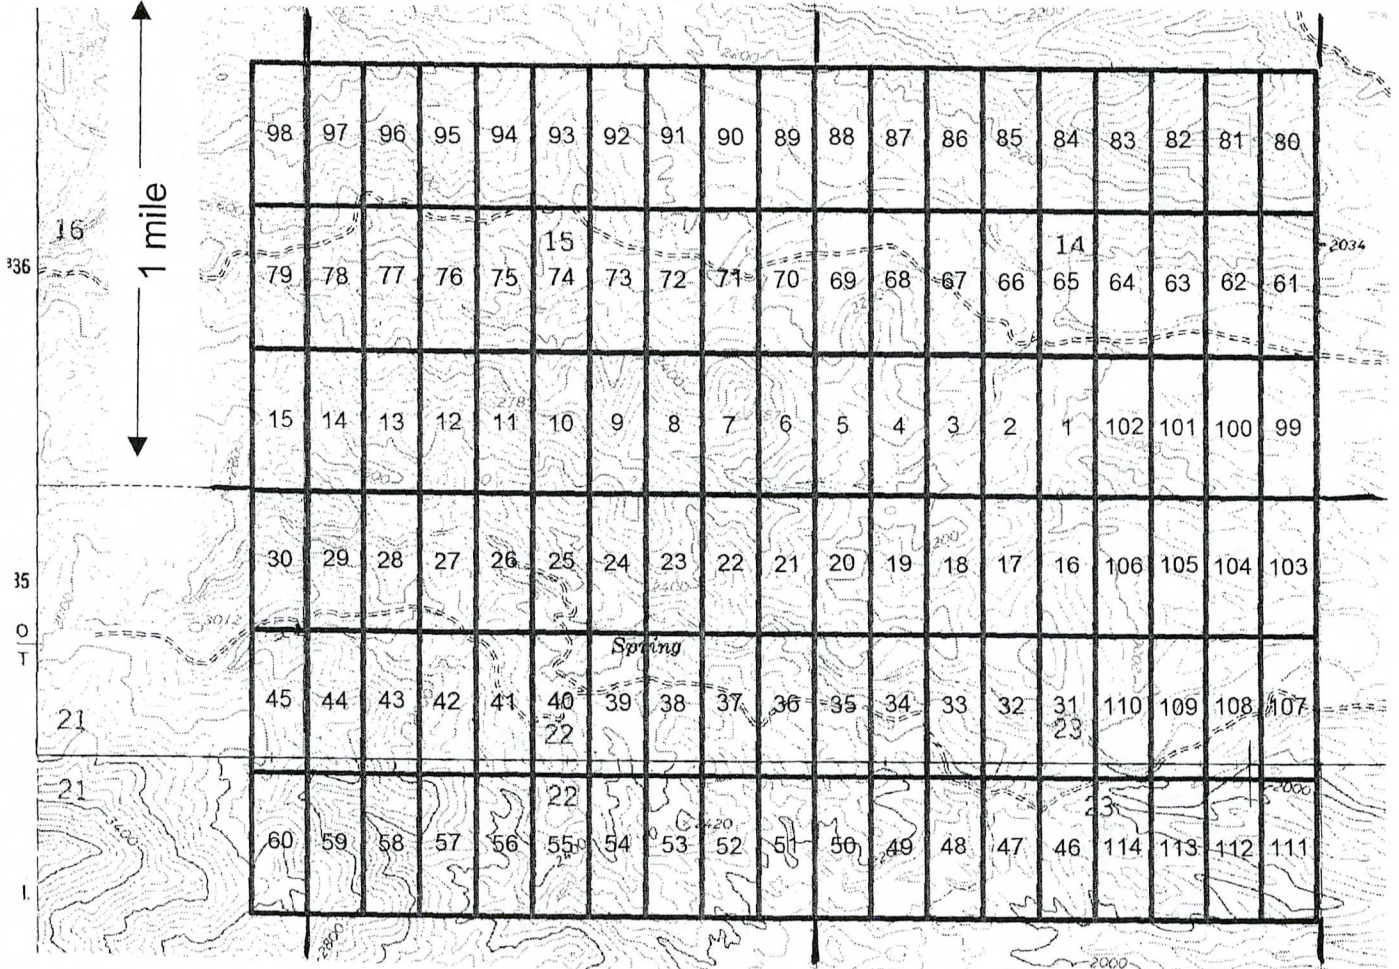 2200
2400
98 97 96 95 94 93 92 91 90 89 88 87 86 85 84 83 82 81 80
16
1 mile
15
14
2034
336
79 78 77 76 75 74 73 72 71 70 69 68 67 66 65 64 63 62 61
2400
278
15 14 13 12 11 10 9 8 7 6 5 4 3 2 1 102 101 100 99
30 29 28 27 26 25 24 23 22 21 20 19 18 17 16 106 105 104 103
35
2400
3012
O
T
Spring
45 44 43 42 41 40 39 38 37 36 35 34 33 32 31 110 109 108 107
21
22
23
21
22
23
2000
3400
2420
60 59 58 57 56 55 54 53 52 51 50 49 48 47 46 114 113 112 111
I.
2800
2000